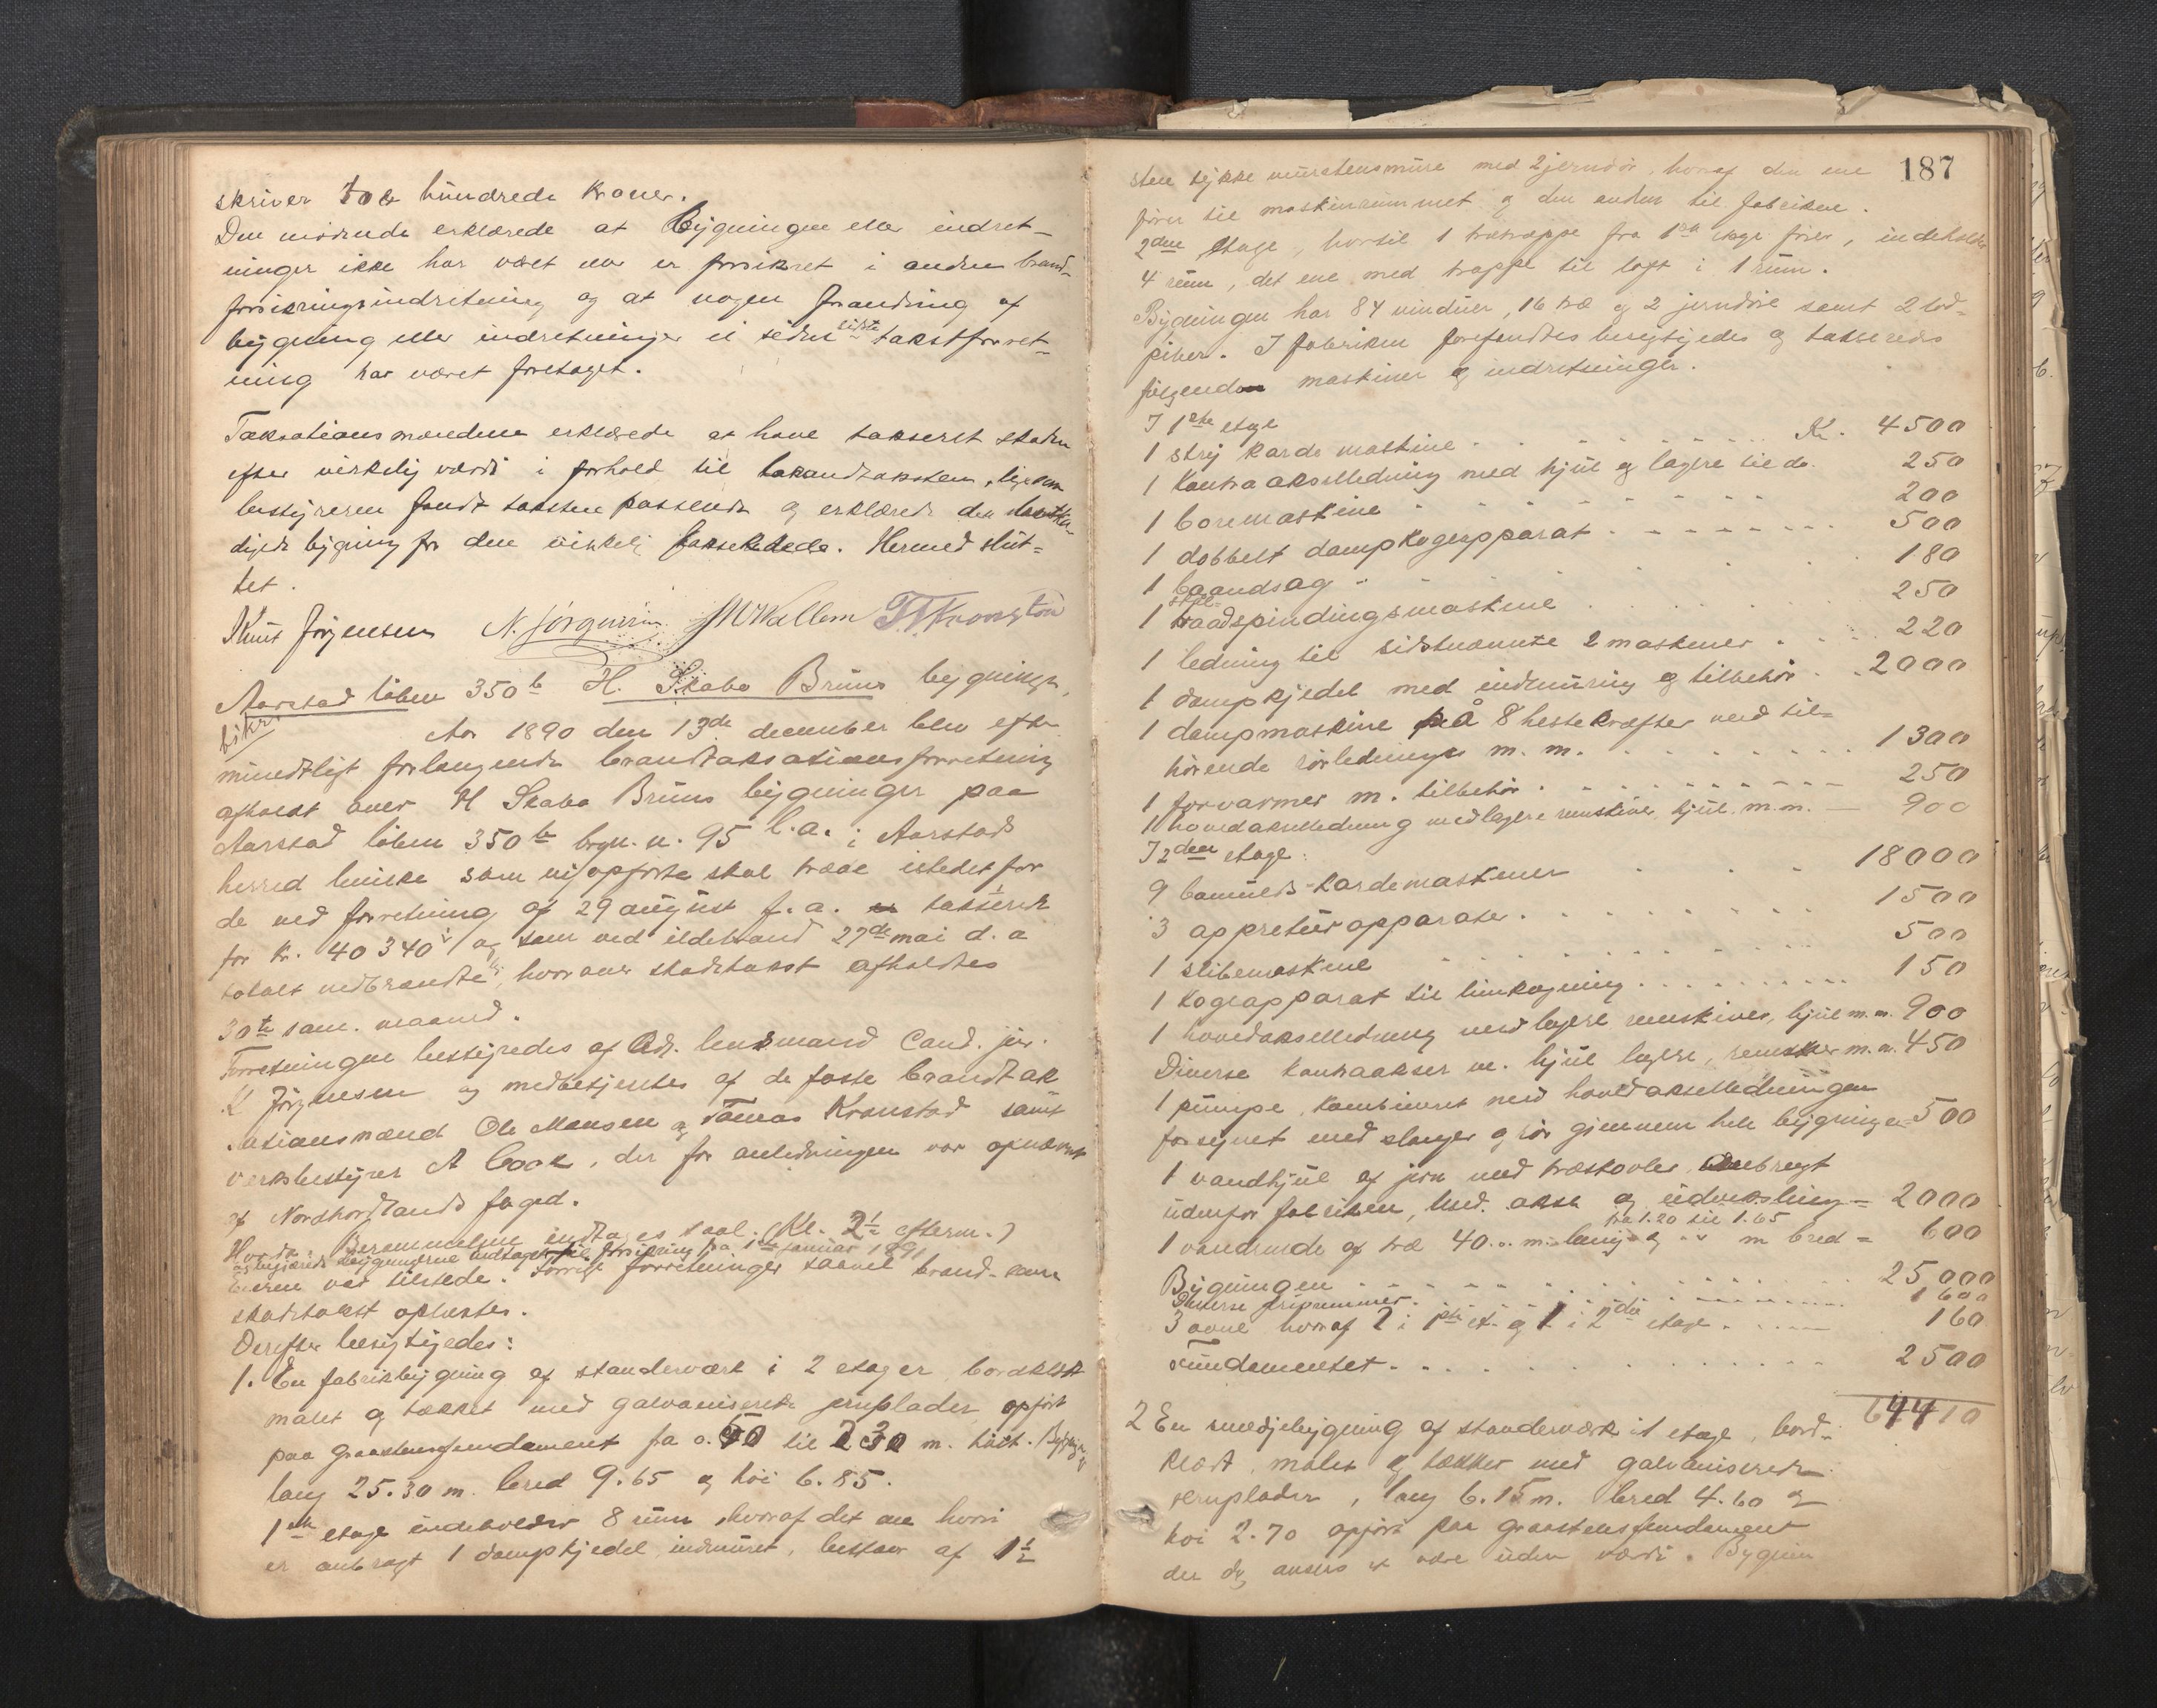 skriver to hundrede kroner.
Den mødende erklærede at bygningen eller indret-
ninger ikke har været eller er forsikret i anden brand-
forsikringsindretning og at nogen forandring af
bygning eller indretninger ei siden sidste takstforret-
ning har været foretaget.
Taksationsmændene erklærede at have takseret skaden
efter virkelig værdi i forhold til brandtaksten, ligesom
bestyreren fandt taksten passende og erklærede den
digede bygning for den virkelig takserede. Hermed slut-
tet.
Knut Jørgensen N. Jørgensen Wallem T. Kronstad
Aarstad løben 350 b H. Skabo Bruns bygninger,
Aar 1890 den 13de december blev efter
mundtligt forlangende brandtaksationsforretning
afholdt over H Skabo Bruns bygninger paa
Aarstad løben 350 b brgn. n. 95 l.a. i Aarstads
herred hvilke som nyopførte skal træde istedetfor
de ved forretning af 29 august f.a. takserede
for kr. 40340 og som ved ildebrand 27de mai d. a
totalt nedbrændte, hvorover skadetakst afholdtes
30te sam. maaned.
Forretningen bestyredes af Adj. lensmand Cand. jur.
K Jørgensen og medbetjentes af de faste brandtak
sationsmænd Ole Monsen og Tomas Kronstad samt
værksbestyrer A Cook, der for anledningen var opnævnt
af Nordhordlands foged.
Berammelsen indtages saal. (Kl. 2½ efterm.)
og begjærede bygningerne indtaget til forsikring fra 1ste januar 1891
Eieren var tilstede. Forrige forretninger saavel brand- som
skadetakst oplæstes.
Derefter besigtigedes:
1. En fabrikbygning af standerværk i 2 etager, bordklædt
malet og tækket med galvaniserede jernplader opført
paa graastensfundament fra 0.50 til 2.30 m. høit.
lang 25.30 m. bred 9.65 og høi 6.85.
1ste etage indeholder 8 rum, hvoraf det ene hvori
er anbragt 1 dampkjedel indmuret, bestaar af 1½
187
sten tykke murstensmure med 2 jerndør, hvoraf den ene
fører til maskinrummet og den anden til fabriken.
2den Etage, hvortil 1 trætrappe fra 1ste etage fører, indeholder
4 rum, det ene med trappe til loft i 1 rum.
Bygningen har 84 vinduer, 16 træ og 2 jerndøre samt 2 lod-
piber. I fabriken forefandtes besigtigedes og takseredes
følgende maskiner og indretninger.
I 1ste etage
1 strykardemaskine Kr. 4500
1 kontraakselledning med hjul og lagere til do. 250
1 boremaskine 200
1 dobbelt dampkogeapparat 500
1 baandsag 180
1 traadspindingsmaskine 250
1 ledning til sidstnævnte 2 maskiner 220
1 dampkjedel med indmuring og tilbehør 2000
1 dampmaskine på 8 hestekræfter med til-
hørende rørledninger m. m. 1300
1 forvarmer m. tilbehør 250
1 hovedakselledning med lagere remskiver, hjul m.m. 900
I 2den etage:
9 bomulds-kardemaskiner 18000
3 appreturapparater 1500
1 slibemaskine 500
1 kogeapparat til limkogning 150
1 hovedakselledning med lagere remskiver, hjul m.m. 900
Diverse kontraakser m. hjul lagere, remskiver m.m. 450
1 pumpe, kombineret med hovedakselledningen
forsynet med slanger og rør gjennem hele bygningen 500
1 vandhjul af jern med træskovler, anbragt
udenfor fabriken, med. aksel og udveksling = 2000
fra 1.20 til 1.65
1 vandrende af træ 40.. m. lang og m bred = 600
Bygningen 25,000
Diverse 1600
3 ovne hvoraf 2 i 1ste et. og 1 i 2den etage 160
Fundamentet 2500
64410
2 En smedjebygning af standerværk i 1 etage, bord-
klædt, malet og tækket med galvaniserede
jernplader, lang 6.15 m. bred 4.60 og
høi 2.70 opført paa graastensfundament
der dog ansees at være uden værdi. Bygnin